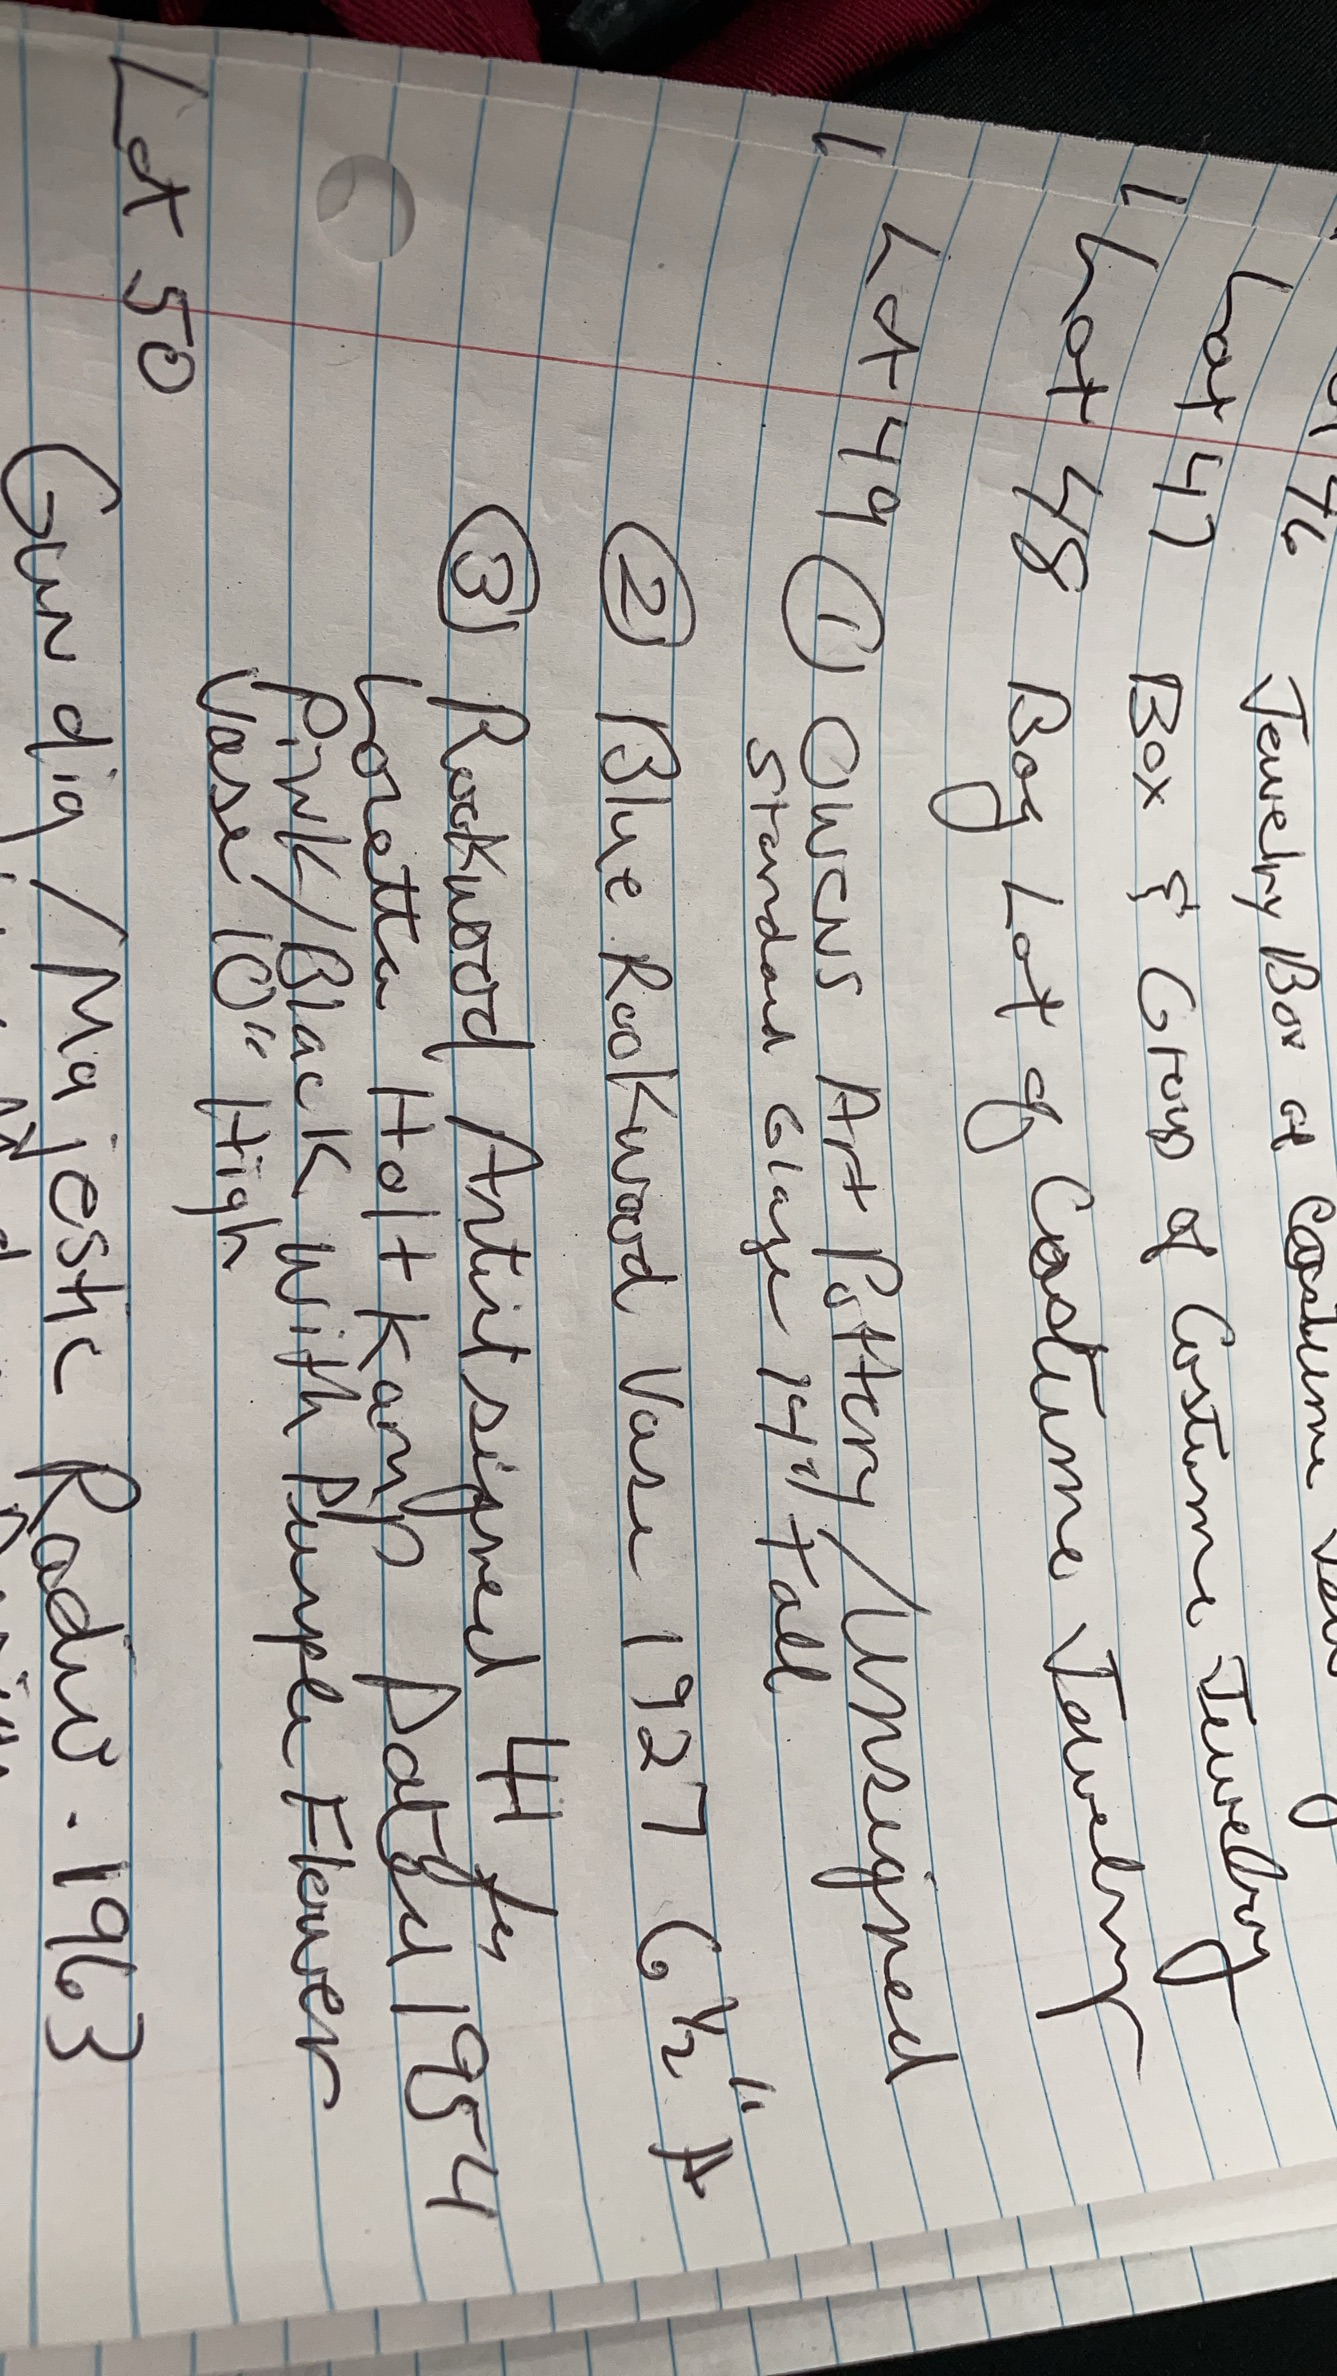 Lot 46 Jewelry Box of Costume
Lot 47 Box & Group of Costume Jewelry
Lot 48 Bag Lot of Costume Jewelry
Lot 49 ① Owens Art Pottery/Unsigned
Standard Glaze 14" tall
② Blue Rookwood Vase 1927 6 1/2"
③ Rookwood Artist signed
Loretta Holt Kamp Dated 1954
Pink/Black With Purple Flower
Vase 10" High
Lot 50
Gundig/Majestic Radio. 1963